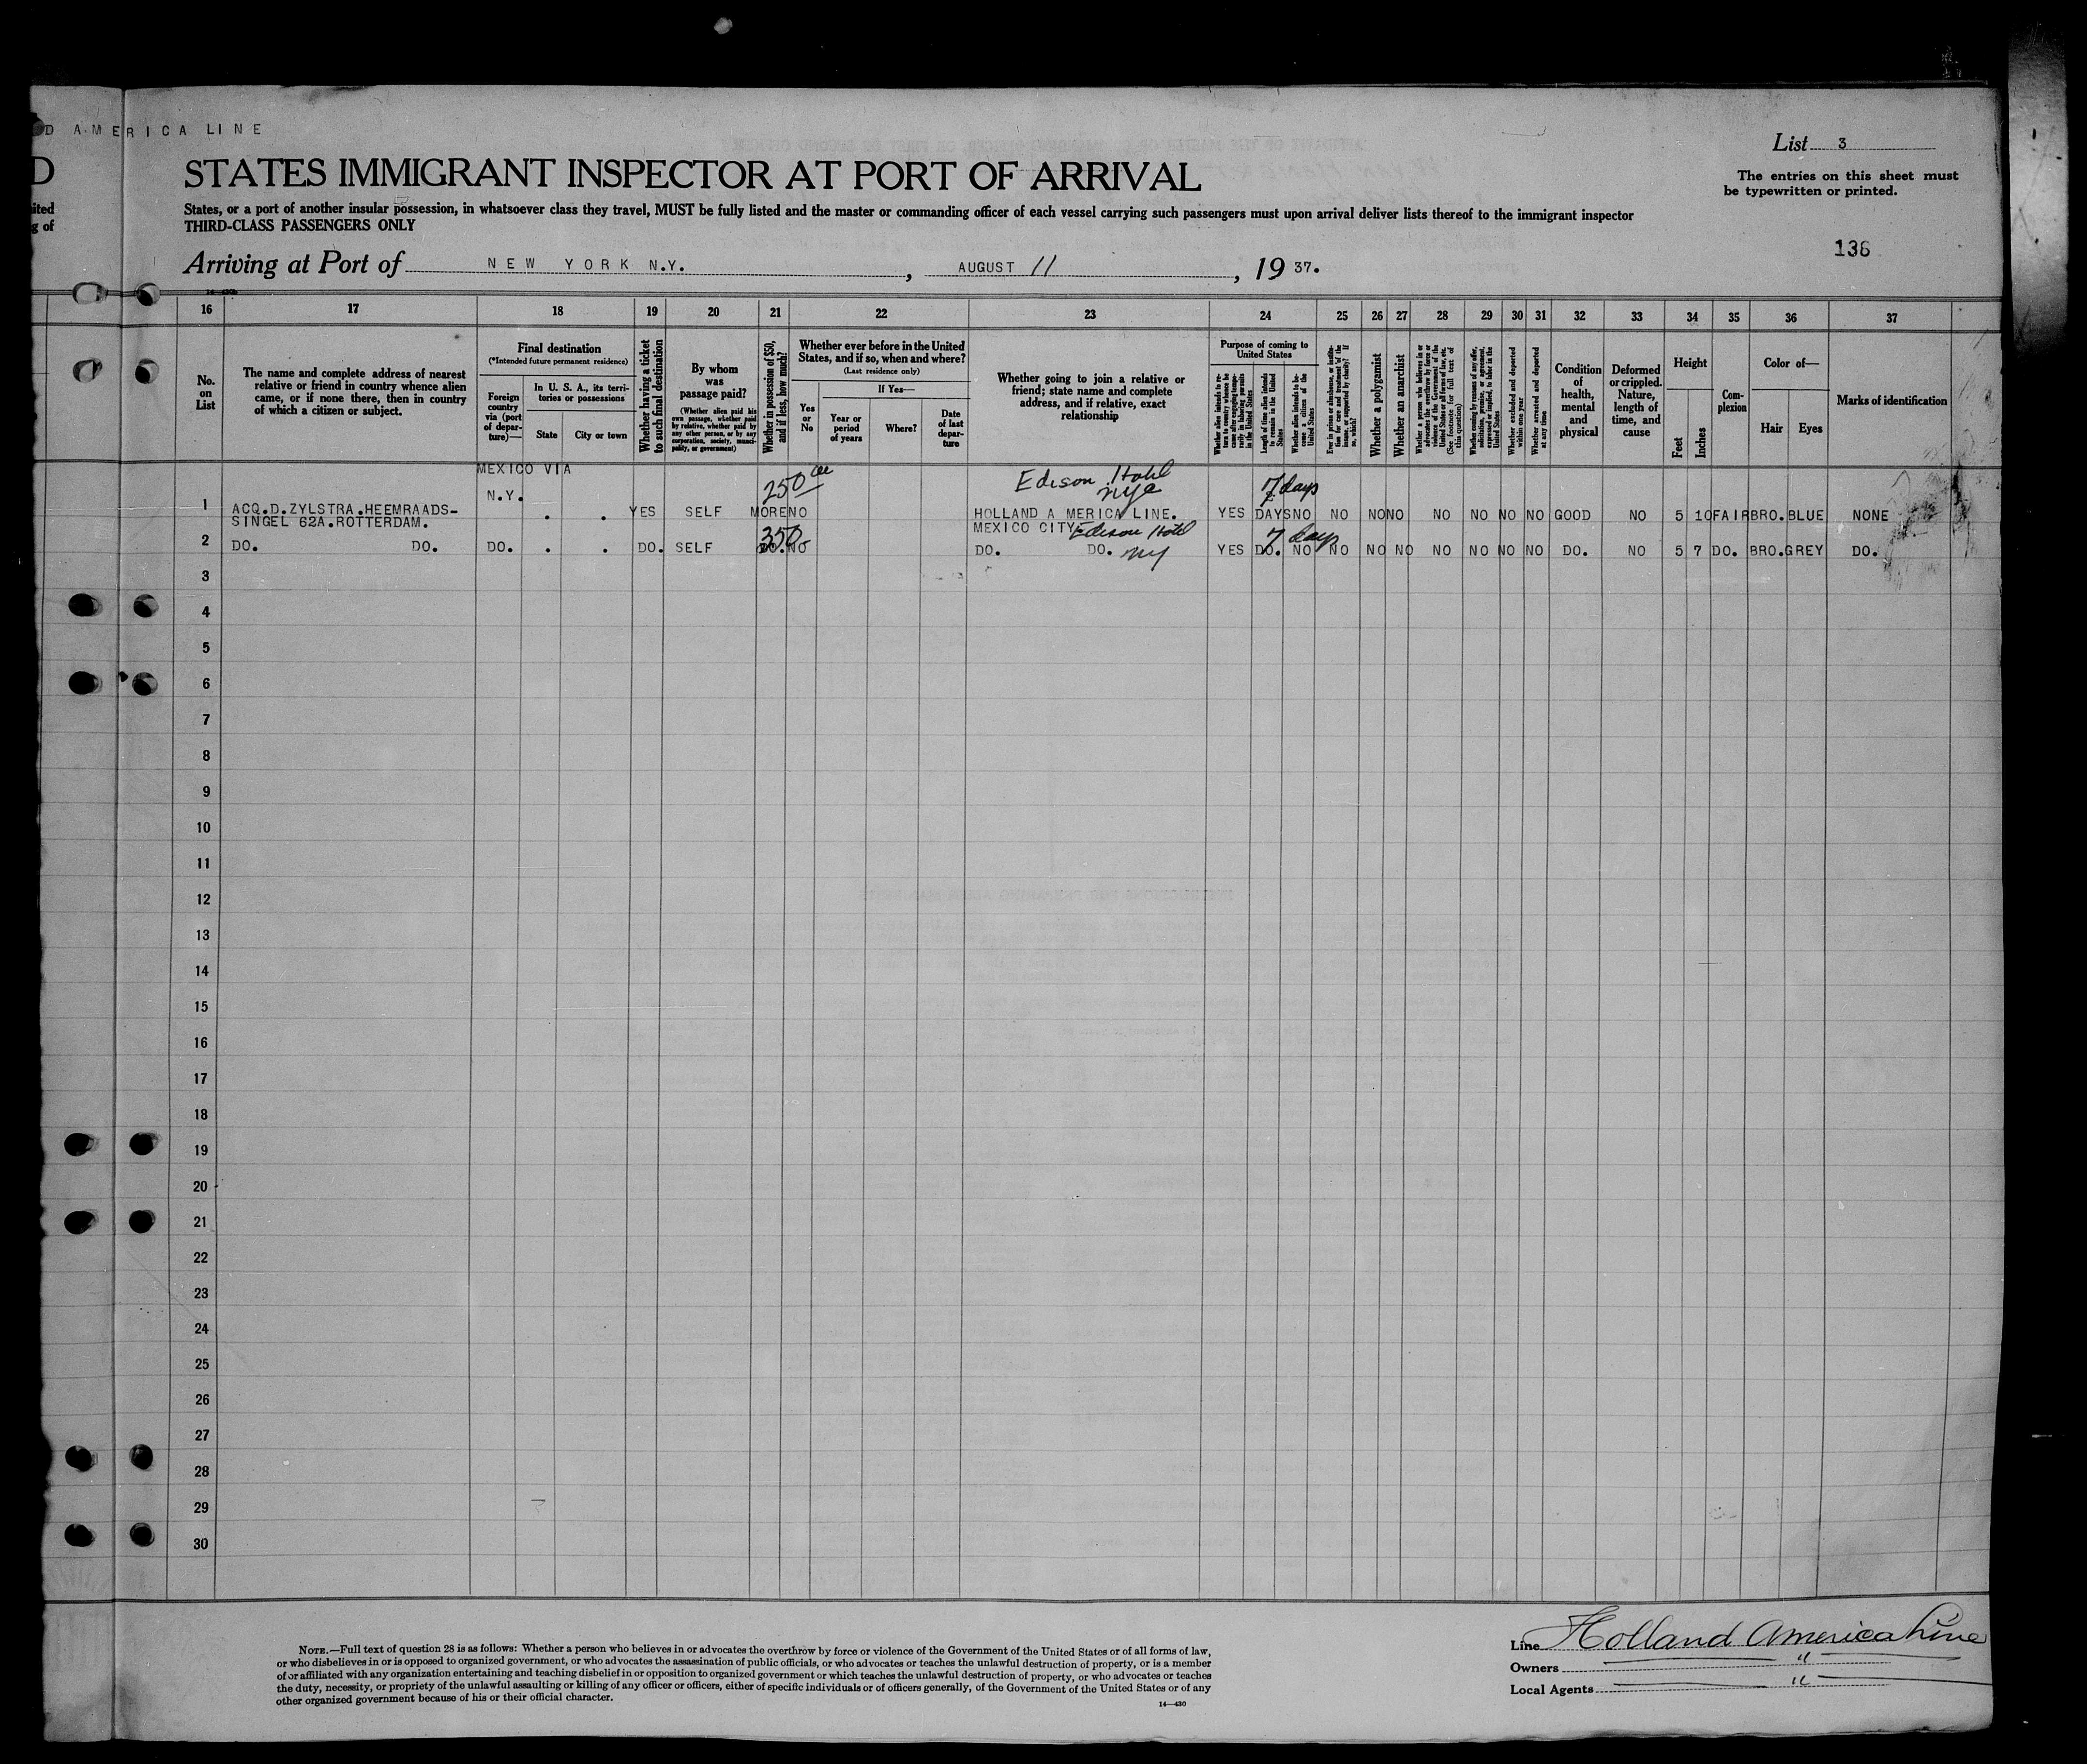 D AMERICA LINE
D
ited
g of
STATES IMMIGRANT INSPECTOR AT PORT OF ARRIVAL
List 3
The entries on this sheet must
be typewritten or printed.
States, or a port of another insular possession, in whatsoever class they travel, MUST be fully listed and the master or commanding officer of each vessel carrying such passengers must upon arrival deliver lists thereof to the immigrant inspector
THIRD-CLASS PASSENGERS ONLY
136
Arriving at Port of NEW YORK N.Y. , AUGUST 11 , 19 37.
16 17 18 19 20 21 22 23 24 25 26 27 28 29 30 31 32 33 34 35 36 37
No.
on
List
The name and complete address of nearest
relative or friend in country whence alien
came, or if none there, then in country
of which a citizen or subject.
Final destination
(*Intended future permanent residence)
Foreign
country
via (port
of depar-
ture)—
In U. S. A., its terri-
tories or possessions
State
City or town
Whether having a ticket
to such final destination
By whom
was
passage paid?
(Whether alien paid his
own passage, whether paid
by relative, whether paid by
any other person, or by any
corporation, society, munici-
pality, or government)
Whether in possession of $50,
and if less, how much?
Whether ever before in the United
States, and if so, when and where?
(Last residence only)
Yes
or
No
If Yes—
Year or
period
of years
Where?
Date
of last
depar-
ture
Whether going to join a relative or
friend; state name and complete
address, and if relative, exact
relationship
Purpose of coming to
United States
Whether alien intends to re-
turn to country whence he
came after engaging tempo-
rarily in laboring pursuits
in the United States
Length of time alien intends
to remain in the United
States
Whether alien intends to be-
come a citizen of the
United States
Ever in prison or almshouse, or institu-
tion for care and treatment of the
insane, or supported by charity? If
so, which?
Whether a polygamist
Whether an anarchist
Whether a person who believes in or
advocates the overthrow by force or
violence of the Government of the
United States or all forms of law, etc.
(See footnote for full text of
this question)
Whether coming by reason of any offer,
solicitation, promise, or agreement,
expressed or implied, to labor in the
United States
Whether excluded and deported
within one year
Whether arrested and deported
at any time
Condition
of
health,
mental
and
physical
Deformed
or crippled.
Nature,
length of
time, and
cause
Height
Feet
Inches
Com-
plexion
Color of—
Hair
Eyes
Marks of identification
MEXICO VIA
N.Y.
250
Edison Hotel
NYC
7 days
1 ACQ.D.ZYLSTRA.HEEMRAADS- . . YES SELF MORE NO HOLLAND A MERICA LINE. YES DAYS NO NO NO NO NO NO NO NO GOOD NO 5 10 FAIR BRO. BLUE NONE
SINGEL 62A.ROTTERDAM. 350 MEXICO CITY Edison Hotel 7 days
2 DO. DO. DO. . . DO. SELF DO. NO DO. DO. NY YES DO. NO NO NO NO NO NO NO NO DO. NO 5 7 DO. BRO. GREY DO.
3
4
5
6
7
8
9
10
11
12
13
14
15
16
17
18
19
20
21
22
23
24
25
26
27
28
29
30
NOTE.—Full text of question 28 is as follows: Whether a person who believes in or advocates the overthrow by force or violence of the Government of the United States or of all forms of law,
or who disbelieves in or is opposed to organized government, or who advocates the assassination of public officials, or who advocates or teaches the unlawful destruction of property, or is a member
of or affiliated with any organization entertaining and teaching disbelief in or opposition to organized government or which teaches the unlawful destruction of property, or who advocates or teaches
the duty, necessity, or propriety of the unlawful assaulting or killing of any officer or officers, either of specific individuals or of officers generally, of the Government of the United States or of any
other organized government because of his or their official character.
14—430
Line Holland America Line
Owners "
Local Agents "